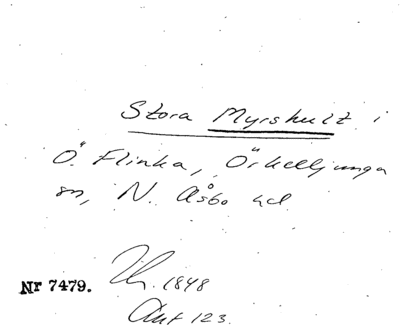 Stora Myrshult i
Ö. Flinka, Örkelljunga
sn, N. Åsbo hd
Nr 7479. Th. 1848
Ant 123